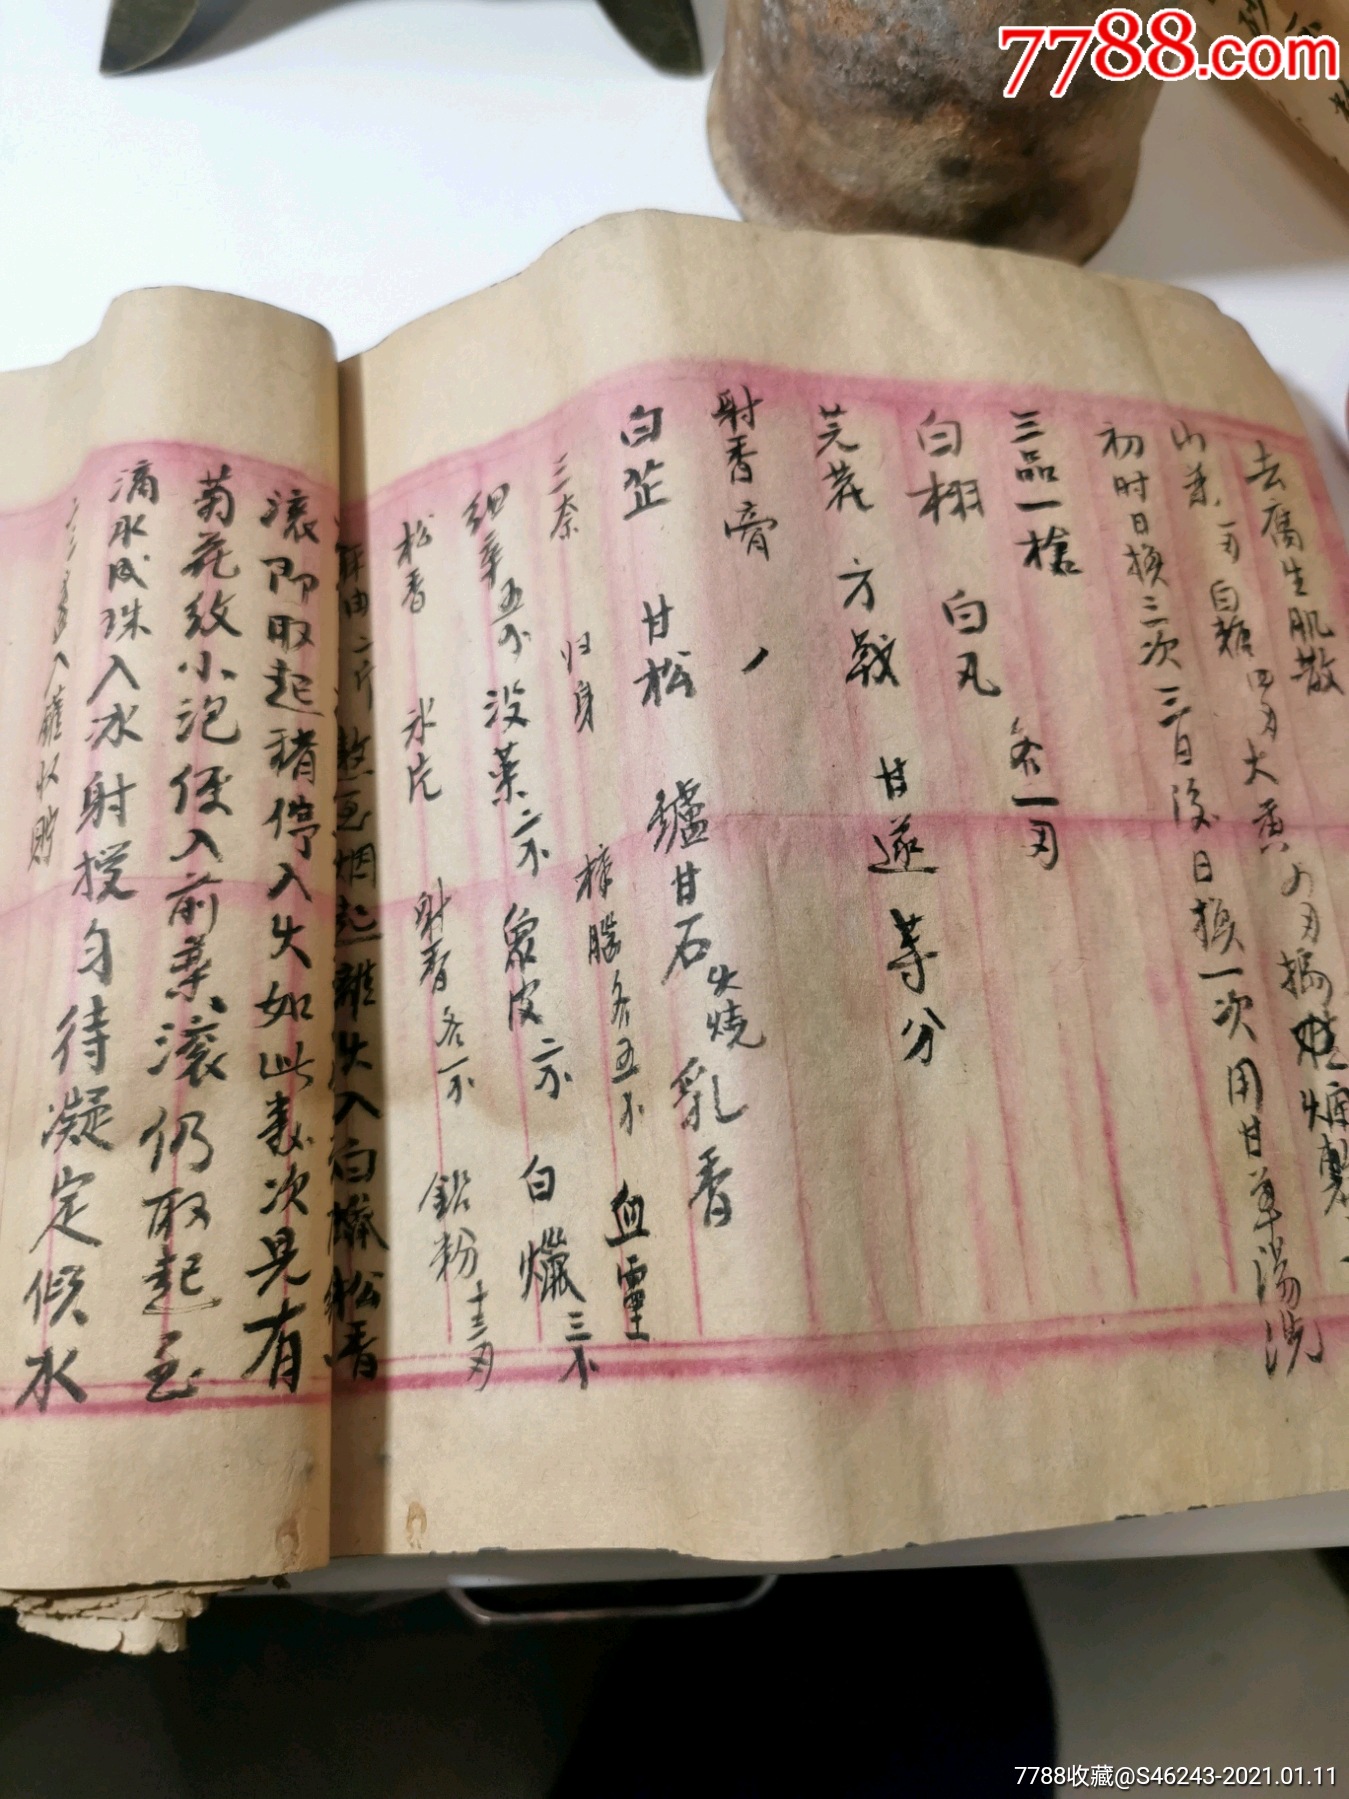 7788.com
去腐生肌散
山藥一刃 白糖四刃 大黄 刃搗
初時日換三次三日後日換一次用甘草湯洗
三品一槍
白栩 白丸 各一刃
芫花 方戟 甘遂 等分
射香膏
白芷 甘松 爐甘石火燒 乳香
三奈 归身 樟腦各五不 血竭
細辛五不 没藥二不 象皮二不 白蠟三不
松香 水片 射香各一不 鉛粉十三刃
麻油二斤 熬至烟起離火入白蠟松香
滚即取起稍停入火如此数次見有
菊花纹小泡便入前藥滚仍取起至
滴水成珠入冰射搅匀待凝定傾水
入確收貯
7788收藏@S46243-2021.01.11